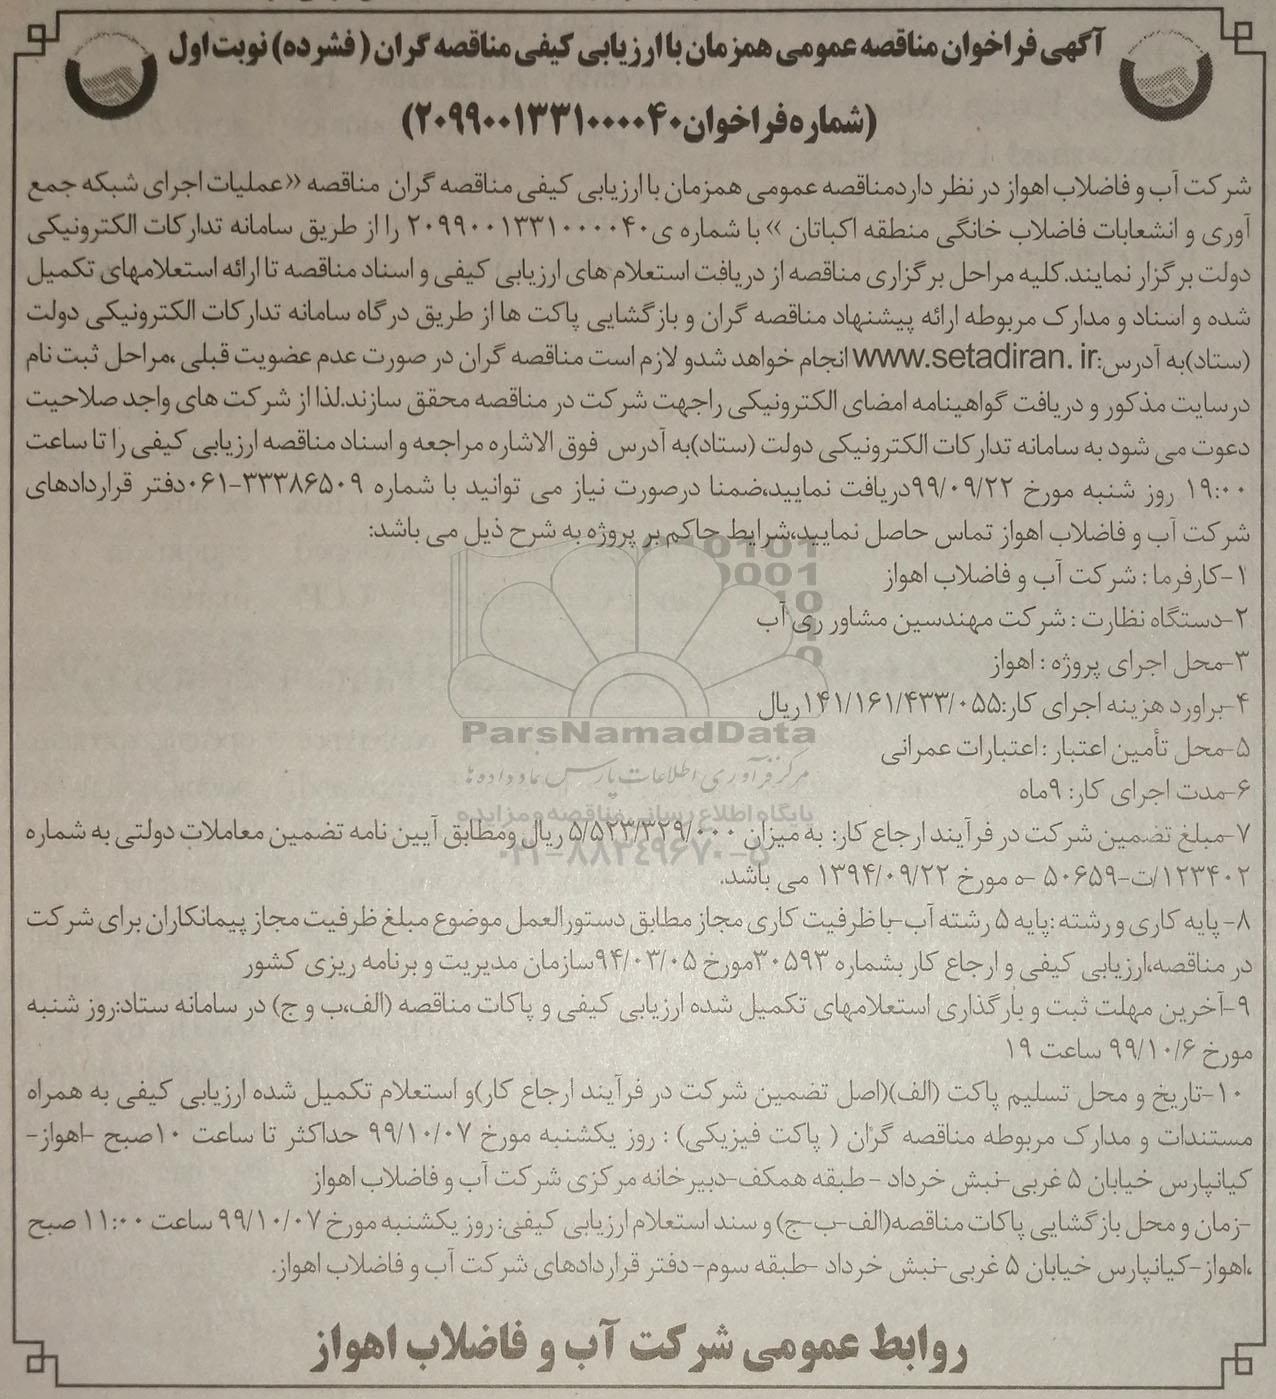 آگهی فراخوان مناقصه عمومی همزمان با ارزیابی کیفی مناقصه گران (فشرده) نوبت اول
(شماره فراخوان ۲۰۹۹۰۰۱۳۳۱۰۰۰۰۴۰)
شرکت آب و فاضلاب اهواز در نظر دارد مناقصه عمومی همزمان با ارزیابی کیفی مناقصه گران مناقصه «عملیات اجرای شبکه جمع
آوری و انشعابات فاضلاب خانگی منطقه اکباتان » با شماره ی ۲۰۹۹۰۰۱۳۳۱۰۰۰۰۴۰ را از طریق سامانه تدارکات الکترونیکی
دولت برگزار نمایند. کلیه مراحل برگزاری مناقصه از دریافت استعلام های ارزیابی کیفی و اسناد مناقصه تا ارائه استعلامهای تکمیل
شده و اسناد و مدارک مربوطه ارائه پیشنهاد مناقصه گران و بازگشایی پاکت ها از طریق درگاه سامانه تدارکات الکترونیکی دولت
(ستاد)به آدرس:www.setadiran. ir انجام خواهد شدو لازم است مناقصه گران در صورت عدم عضویت قبلی ،مراحل ثبت نام
درسایت مذکور و دریافت گواهینامه امضای الکترونیکی راجهت شرکت در مناقصه محقق سازند.لذا از شرکت های واجد صلاحیت
دعوت می شود به سامانه تدارکات الکترونیکی دولت (ستاد)به آدرس فوق الاشاره مراجعه و اسناد مناقصه ارزیابی کیفی را تا ساعت
۱۹:۰۰ روز شنبه مورخ ۹۹/۰۹/۲۲دریافت نمایید،ضمنا درصورت نیاز می توانید با شماره ۳۳۳۸۶۵۰۹-۰۶۱دفتر قراردادهای
شرکت آب و فاضلاب اهواز تماس حاصل نمایید،شرایط حاکم بر پروژه به شرح ذیل می باشد:
۱-کارفرما : شرکت آب و فاضلاب اهواز
۲-دستگاه نظارت : شرکت مهندسین مشاور ری آب
۳-محل اجرای پروژه : اهواز
۴-براورد هزینه اجرای کار:۱۴۱/۱۶۱/۴۳۳/۰۵۵ریال
۵-محل تأمین اعتبار : اعتبارات عمرانی
۶-مدت اجرای کار: ۹ماه
۷-مبلغ تضمین شرکت در فرآیند ارجاع کار: به میزان ۵/۵۲۳/۳۲۹/۰۰۰ ریال ومطابق آیین نامه تضمین معاملات دولتی به شماره
۱۲۳۴۰۲/ت-۵۰۶۵۹ -ه مورخ ۱۳۹۴/۰۹/۲۲ می باشد.
۸- پایه کاری و رشته :پایه ۵ رشته آب-با ظرفیت کاری مجاز مطابق دستورالعمل موضوع مبلغ ظرفیت مجاز پیمانکاران برای شرکت
در مناقصه،ارزیابی کیفی و ارجاع کار بشماره ۳۰۵۹۳مورخ ۹۴/۰۳/۰۵سازمان مدیریت و برنامه ریزی کشور
۹-آخرین مهلت ثبت و بارگذاری استعلامهای تکمیل شده ارزیابی کیفی و پاکات مناقصه (الف،ب و ج) در سامانه ستاد:روز شنبه
مورخ ۹۹/۱۰/۶ ساعت ۱۹
۱۰-تاریخ و محل تسلیم پاکت (الف)(اصل تضمین شرکت در فرآیند ارجاع کار)و استعلام تکمیل شده ارزیابی کیفی به همراه
مستندات و مدارک مربوطه مناقصه گران ( پاکت فیزیکی) : روز یکشنبه مورخ ۹۹/۱۰/۰۷ حداکثر تا ساعت ۱۰صبح -اهواز-
کیانپارس خیابان ۵ غربی-نبش خرداد - طبقه همکف-دبیرخانه مرکزی شرکت آب و فاضلاب اهواز
-زمان و محل بازگشایی پاکات مناقصه(الف-ب-ج) و سند استعلام ارزیابی کیفی: روز یکشنبه مورخ ۹۹/۱۰/۰۷ ساعت ۱۱:۰۰ صبح
،اهواز-کیانپارس خیابان ۵ غربی-نبش خرداد -طبقه سوم- دفتر قراردادهای شرکت آب و فاضلاب اهواز.
روابط عمومی شرکت آب و فاضلاب اهواز
ParsNamadData
مرکز فرآوری اطلاعات پارس نماد داده ها
پایگاه اطلاع رسانی مناقصه و مزایده
۰۲۱-۸۸۳۴۹۶۷۰-۵